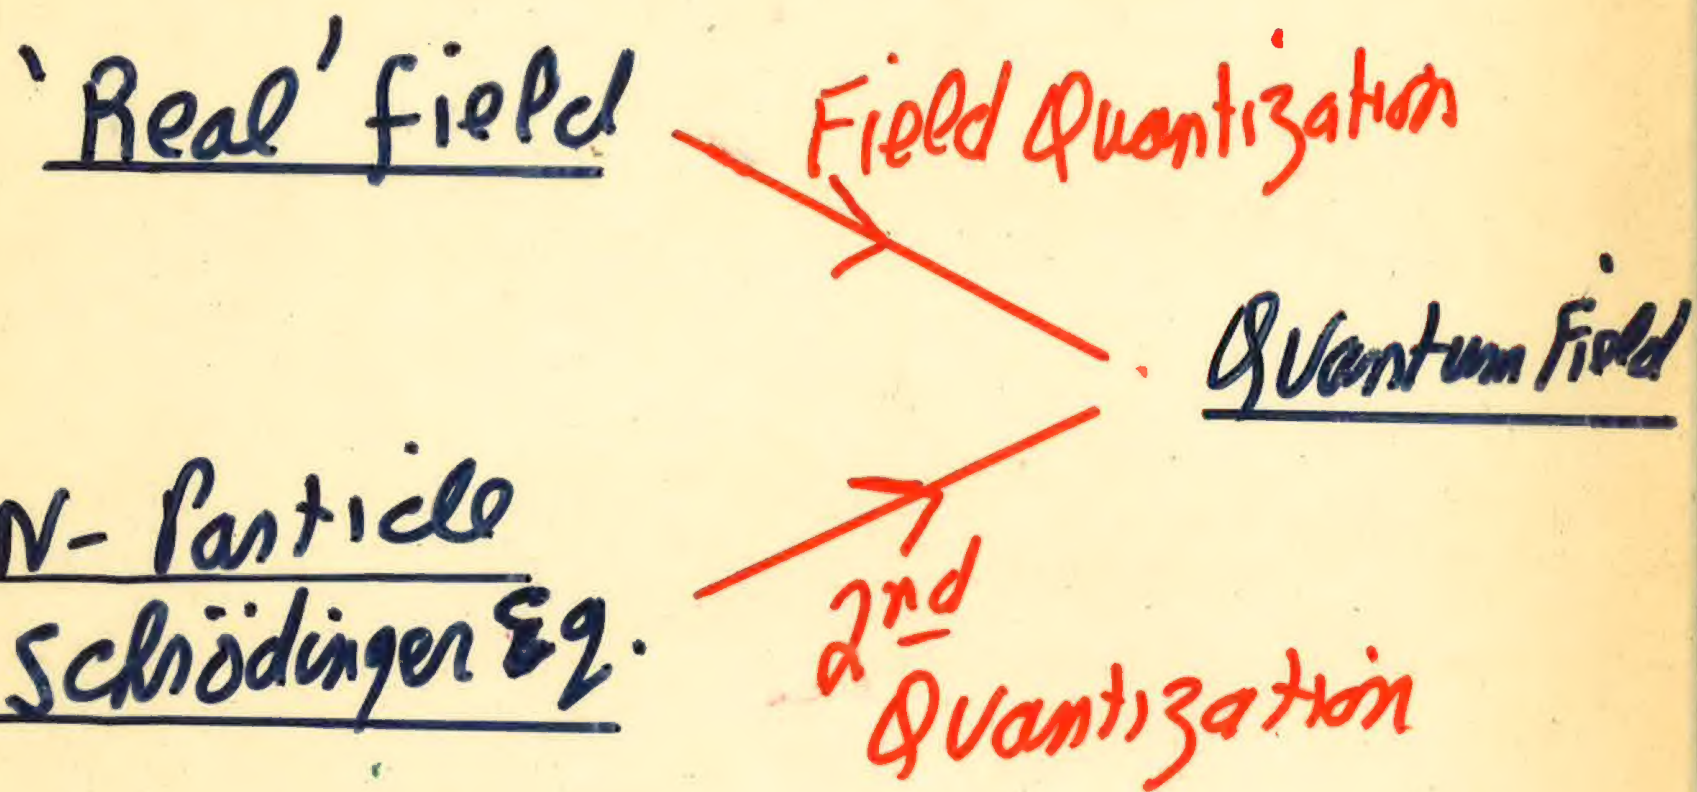 'Real' field
Field Quantization
Quantum Field
N- Particle
Schrödinger Eq.
2nd
Quantization